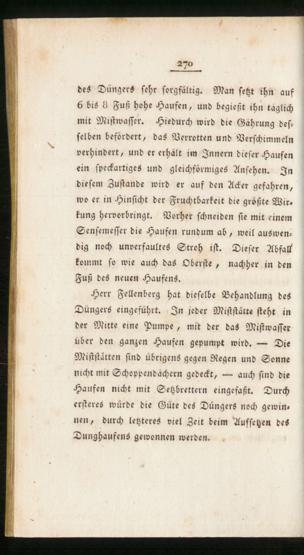 270
des Düngers sehr sorgfältig. Man setzt ihn auf
6 bis 8 Fuß hohe Haufen, und begießt ihn täglich
mit Mistwasser. Hiedurch wird die Gährung des-
selben befördert, das Verrotten und Verschimmeln
verhindert, und er erhält im Innern dieser Haufen
ein speckartiges und gleichförmiges Ansehen. In
diesem Zustande wird er auf den Acker gefahren,
wo er in Hinsicht der Fruchtbarkeit die größte Wir-
kung hervorbringt. Vorher schneiden sie mit einem
Sensemesser die Haufen rundum ab, weil auswen-
dig noch unverfaultes Stroh ist. Dieser Abfall
kommt so wie auch das Oberste, nachher in den
Fuß des neuen Haufens.
Herr Fellenberg hat dieselbe Behandlung des
Düngers eingeführt. In jeder Miststätte steht in
der Mitte eine Pumpe, mit der das Mistwasser
über den ganzen Haufen gepumpt wird. — Die
Miststätten sind übrigens gegen Regen und Sonne
nicht mit Schoppendächern gedeckt, — auch sind die
Haufen nicht mit Setzbrettern eingefaßt. Durch
ersteres würde die Güte des Düngers noch gewin-
nen, durch letzteres viel Zeit beim Aufsetzen des
Dunghaufens gewonnen werden.